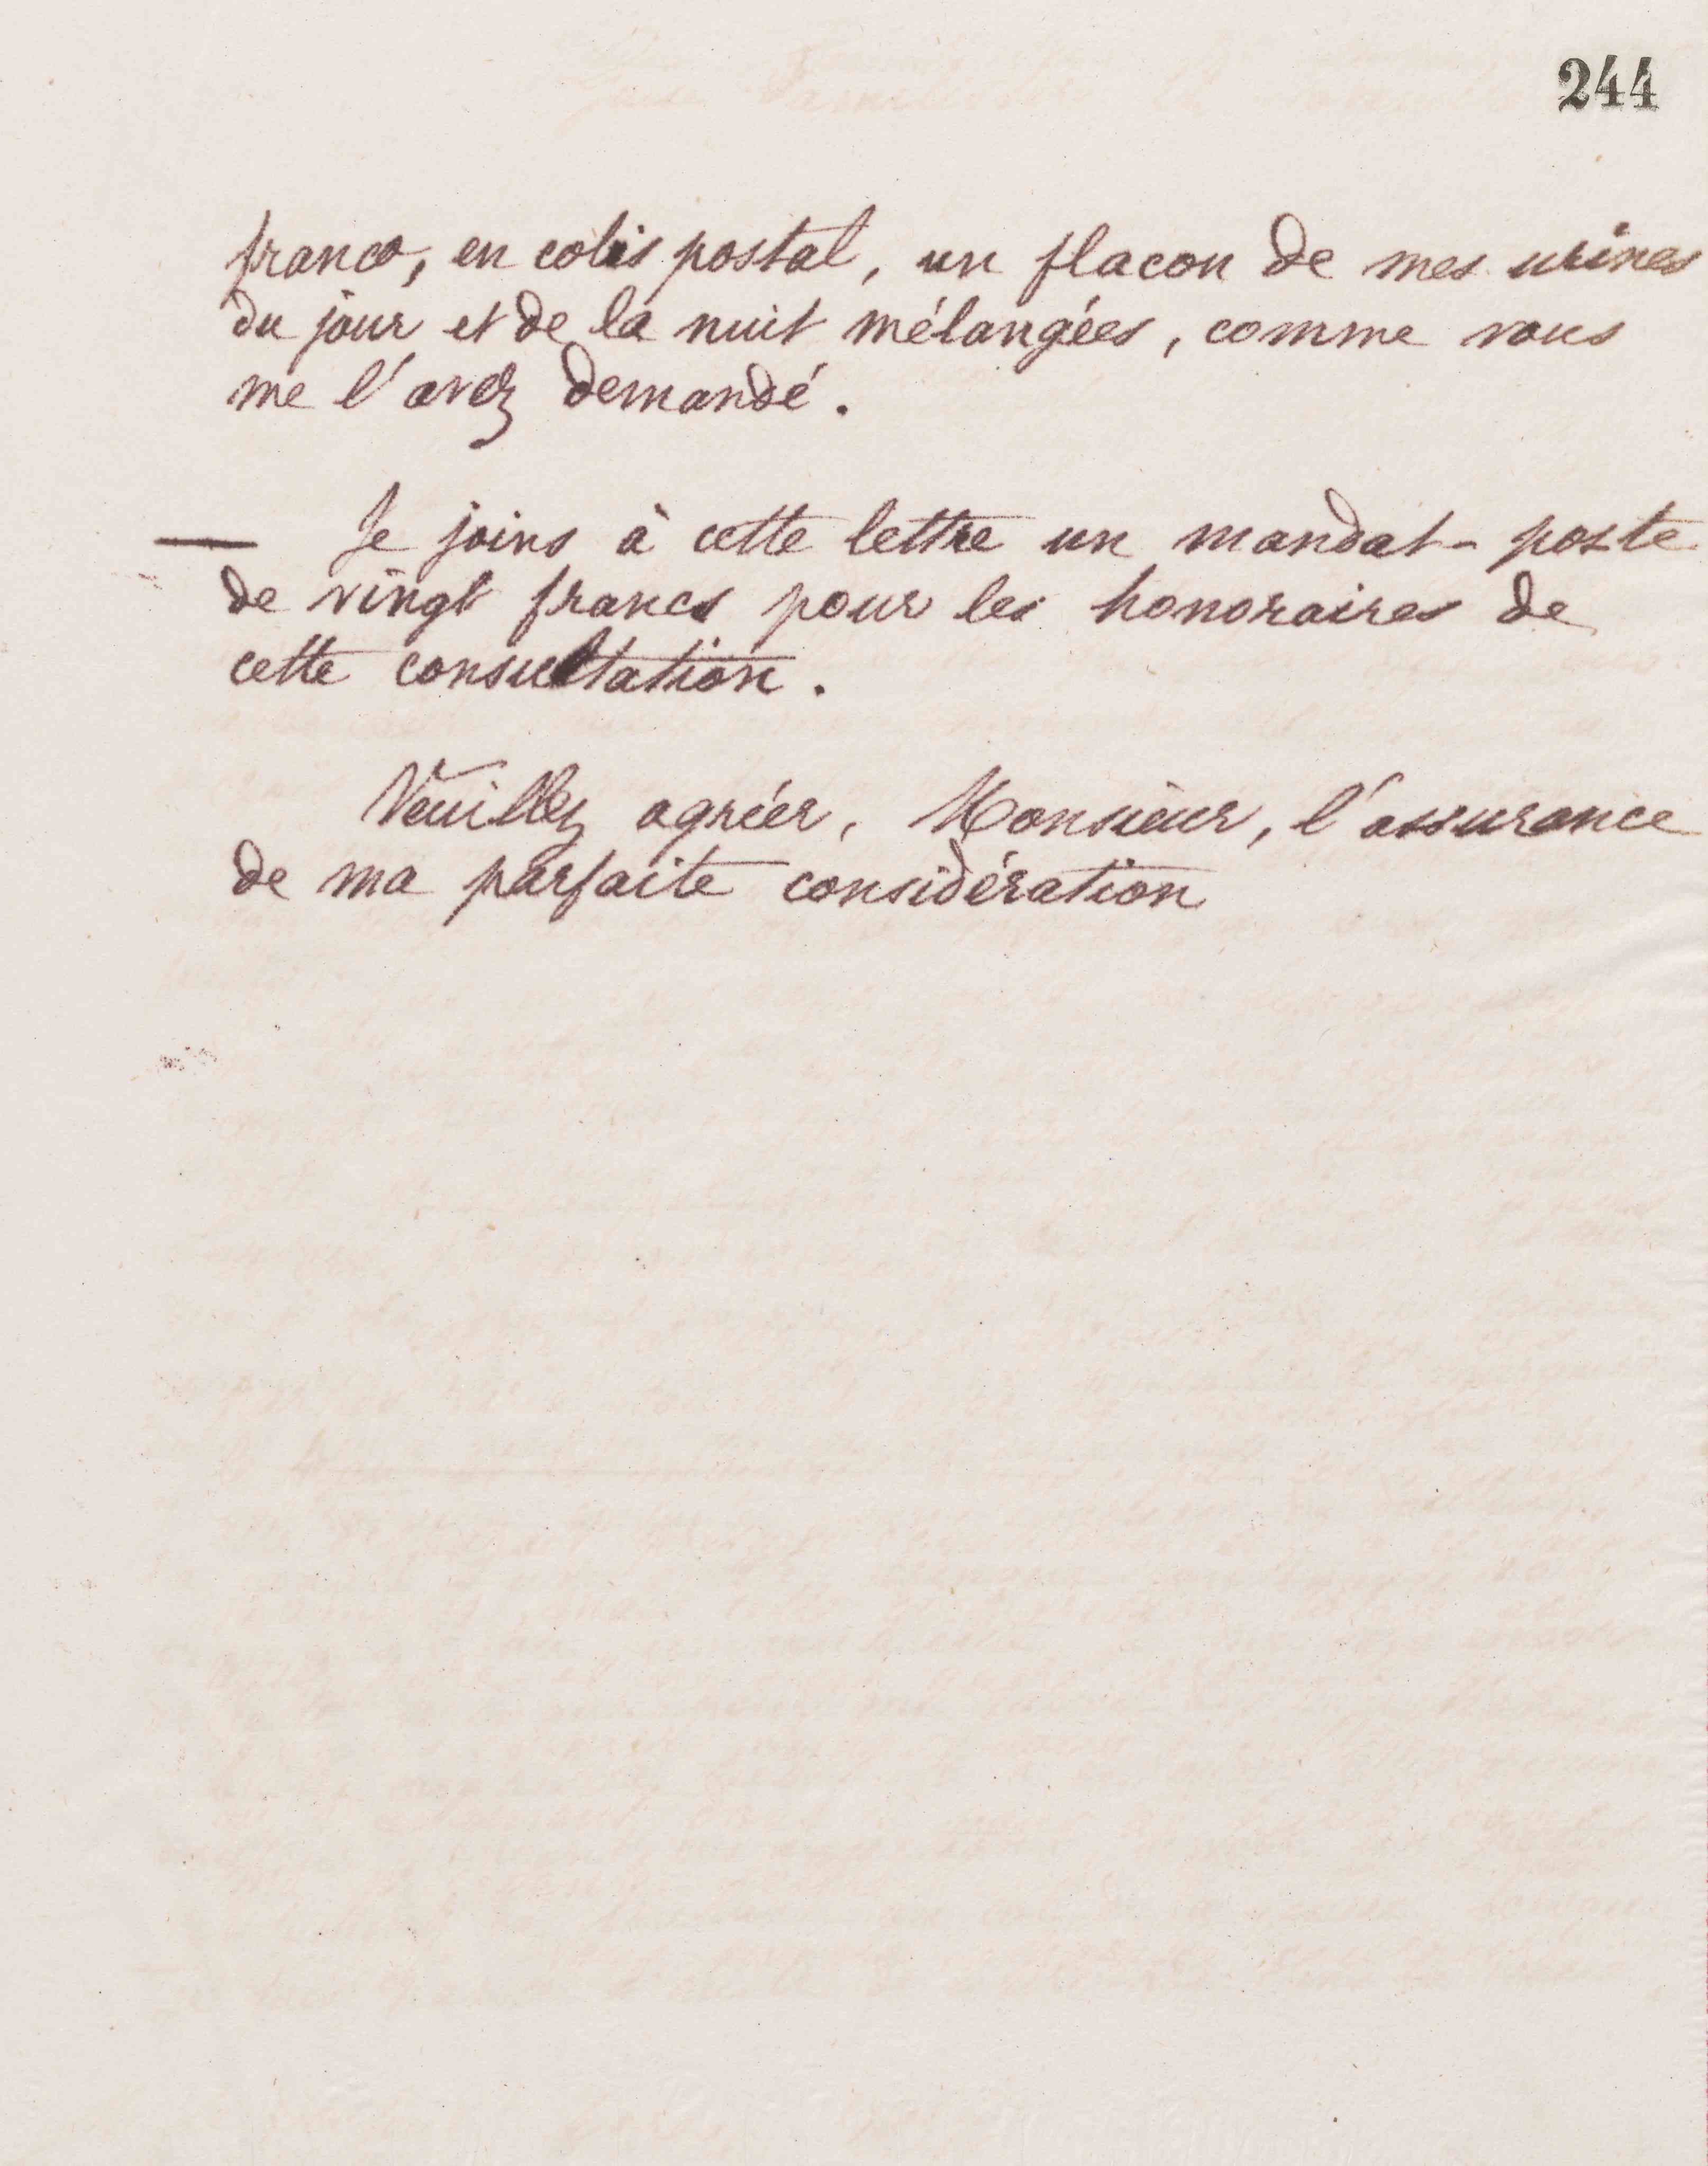 244
franco, en colis postal, un flacon de mes urines
du jour et de la nuit mélangées, comme vous
me l'avez demandé.
— Je joins à cette lettre un mandat-poste
de vingt francs pour les honoraires de
cette consultation.
Veuillez agréer, Monsieur, l'assurance
de ma parfaite considération